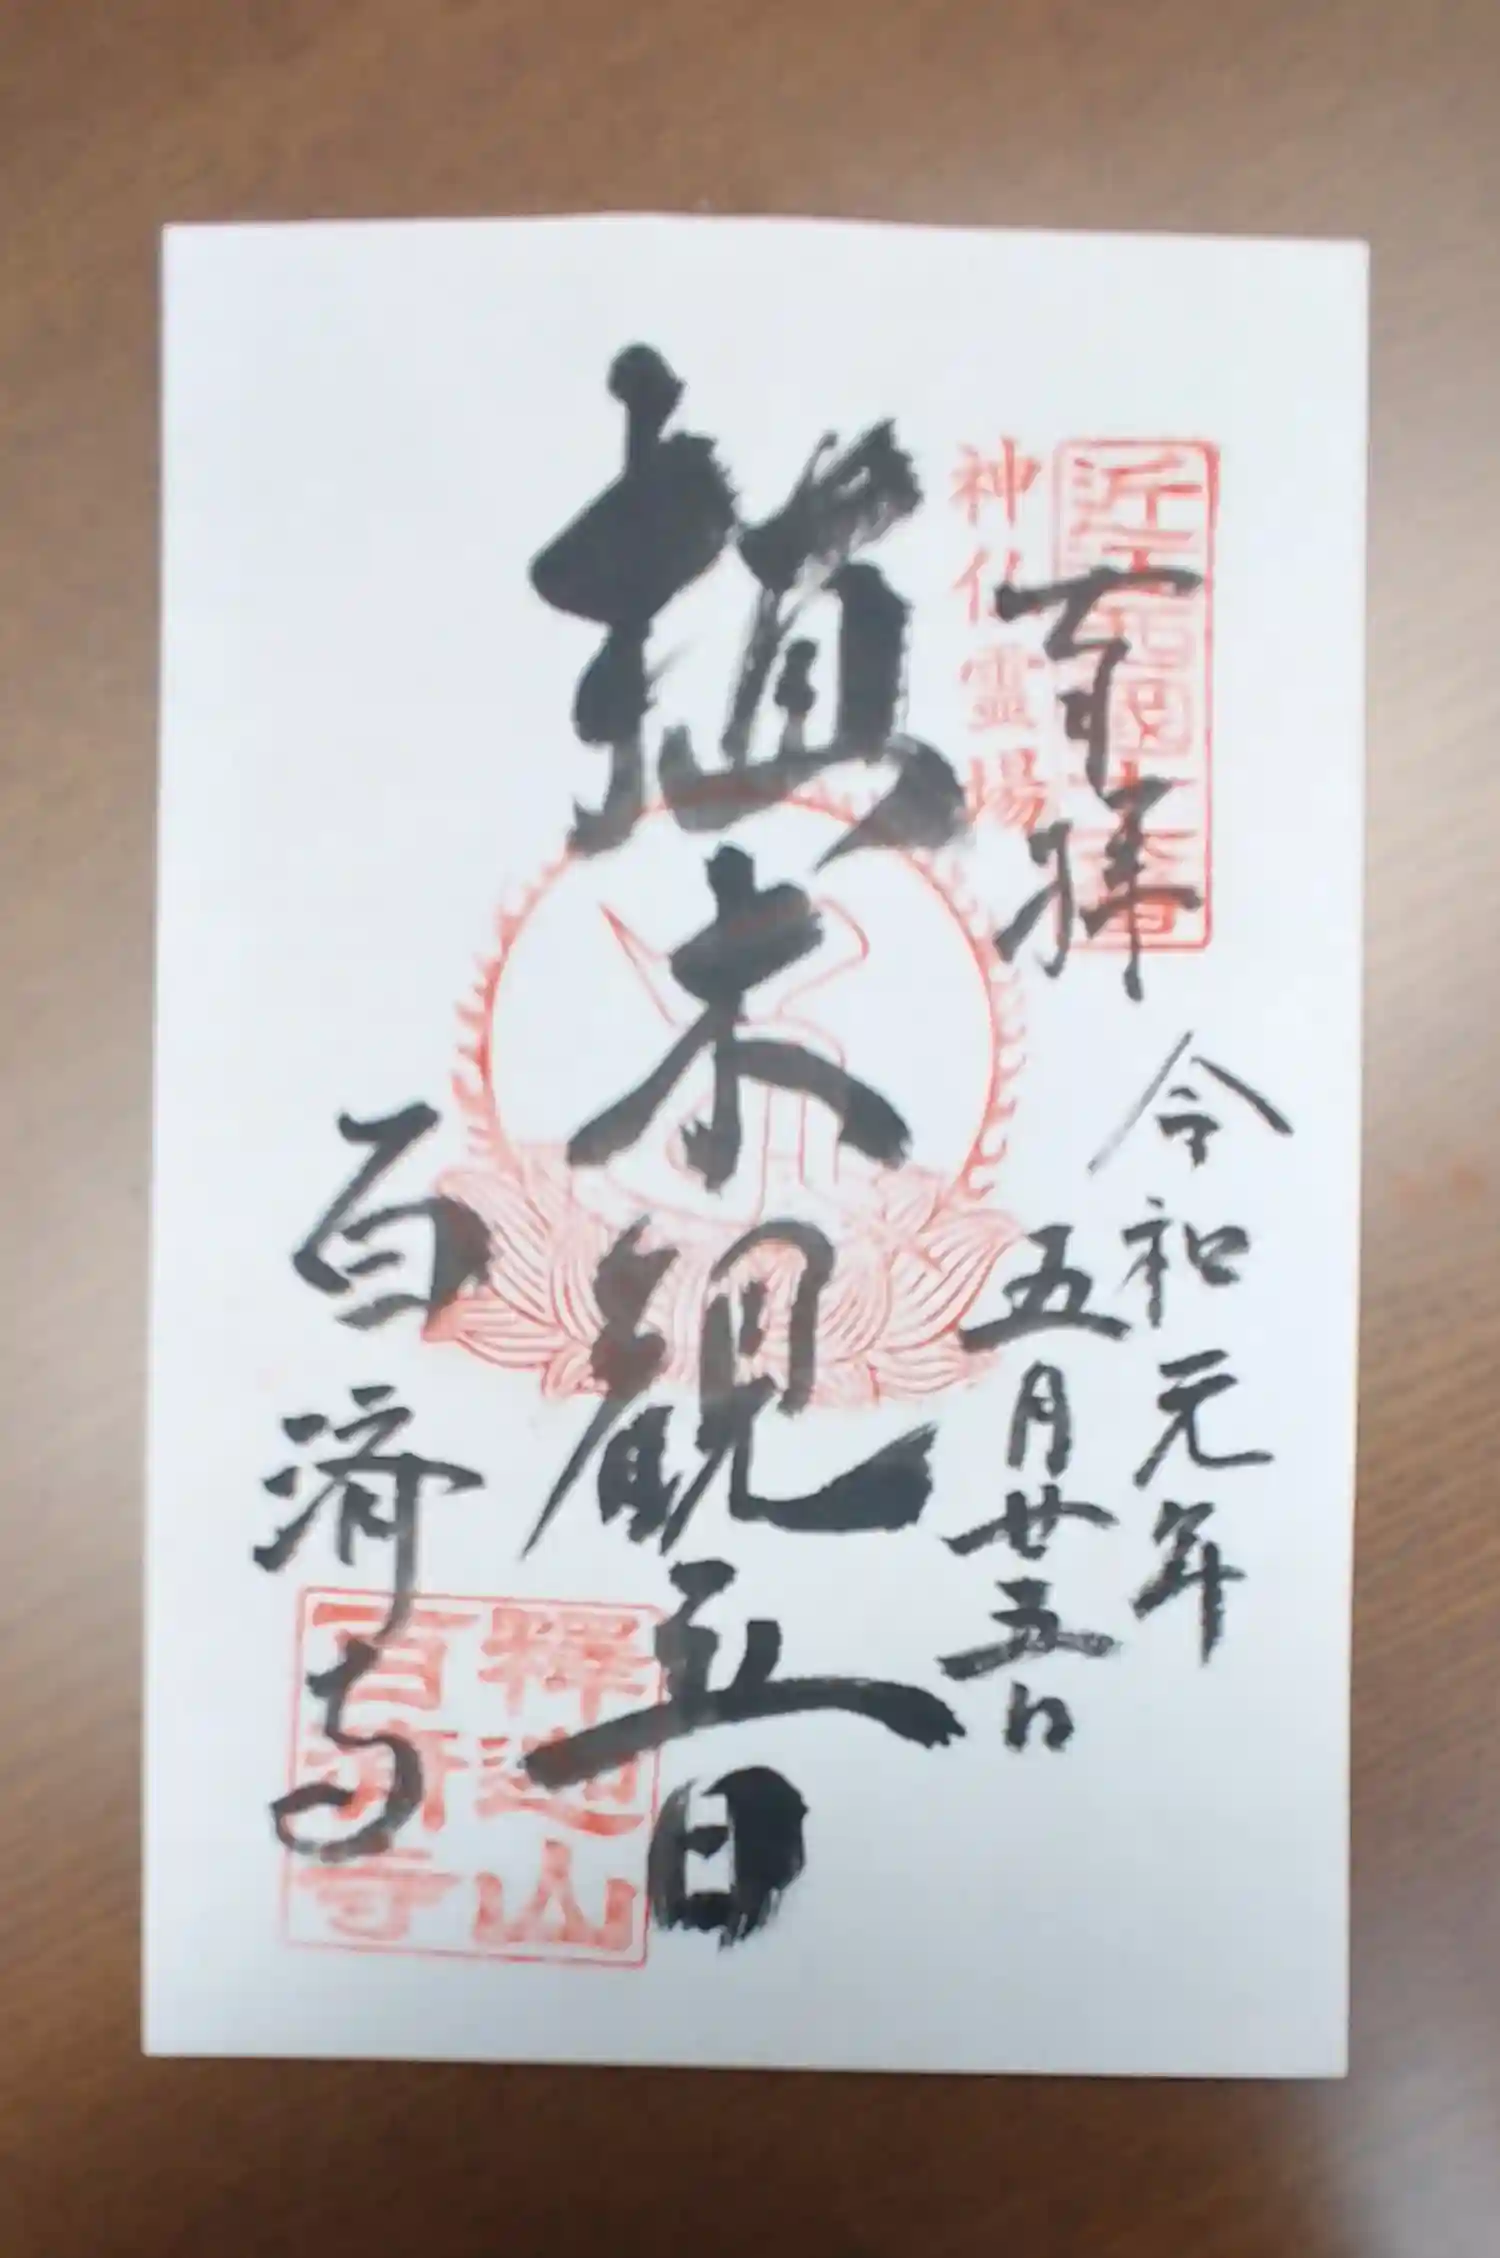 奉拝
令和元年
五月廿五日
植木観音
百済寺
神仏霊場
近江西国十六番
釋迦山
百済寺